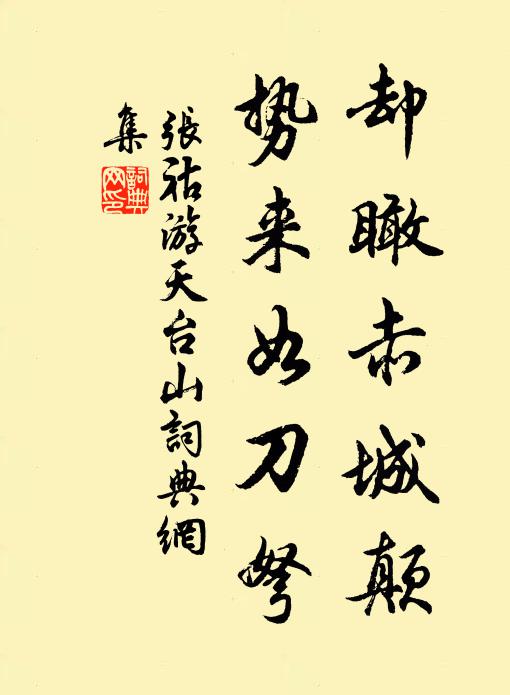 却瞰赤城颠
势来如刀弩
張祜游天台山詞典網
集
詞典
网印